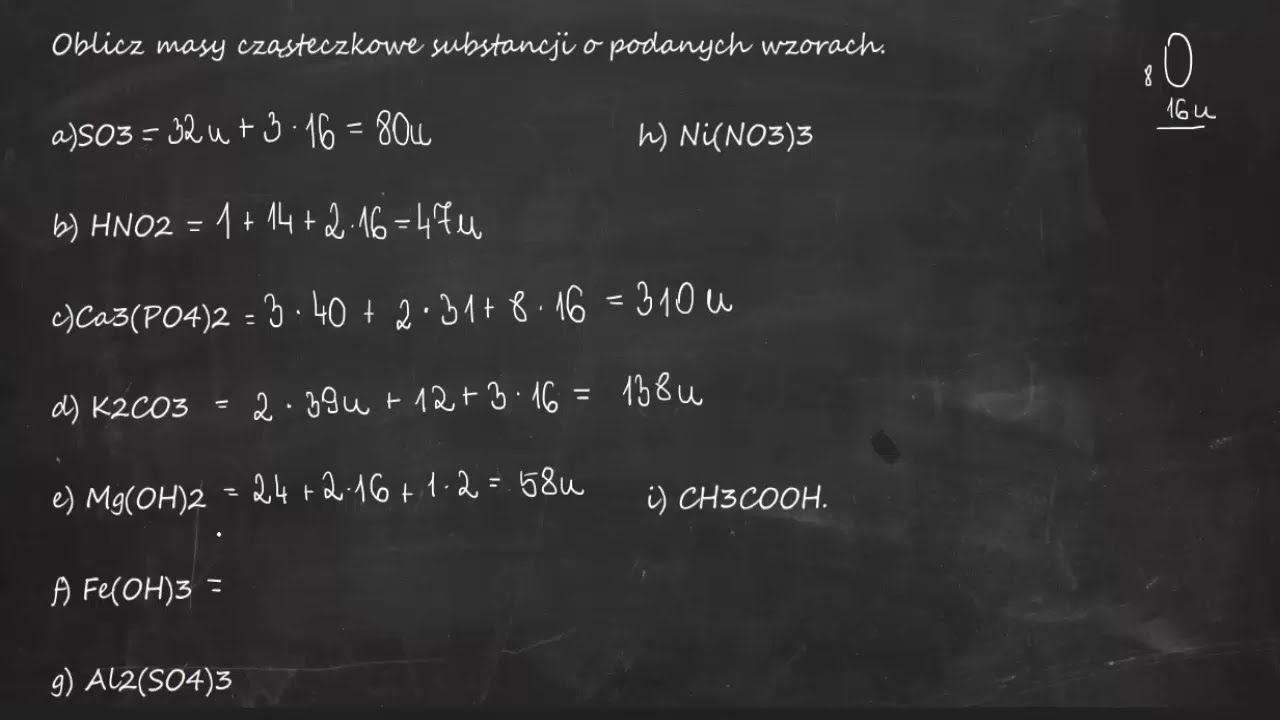 Oblicz masy cząsteczkowe substancji o podanych wzorach.
8 O
16u
a)SO3 = 32u + 3 · 16 = 80u
h) Ni(NO3)3
b) HNO2 = 1 + 14 + 2·16 = 47u
c)Ca3(PO4)2 = 3 · 40 + 2 · 31 + 8 · 16 = 310u
d) K2CO3 = 2 · 39u + 12 + 3 · 16 = 138u
e) Mg(OH)2 = 24 + 2·16 + 1·2 = 58u
i) CH3COOH.
f) Fe(OH)3 =
g) Al2(SO4)3